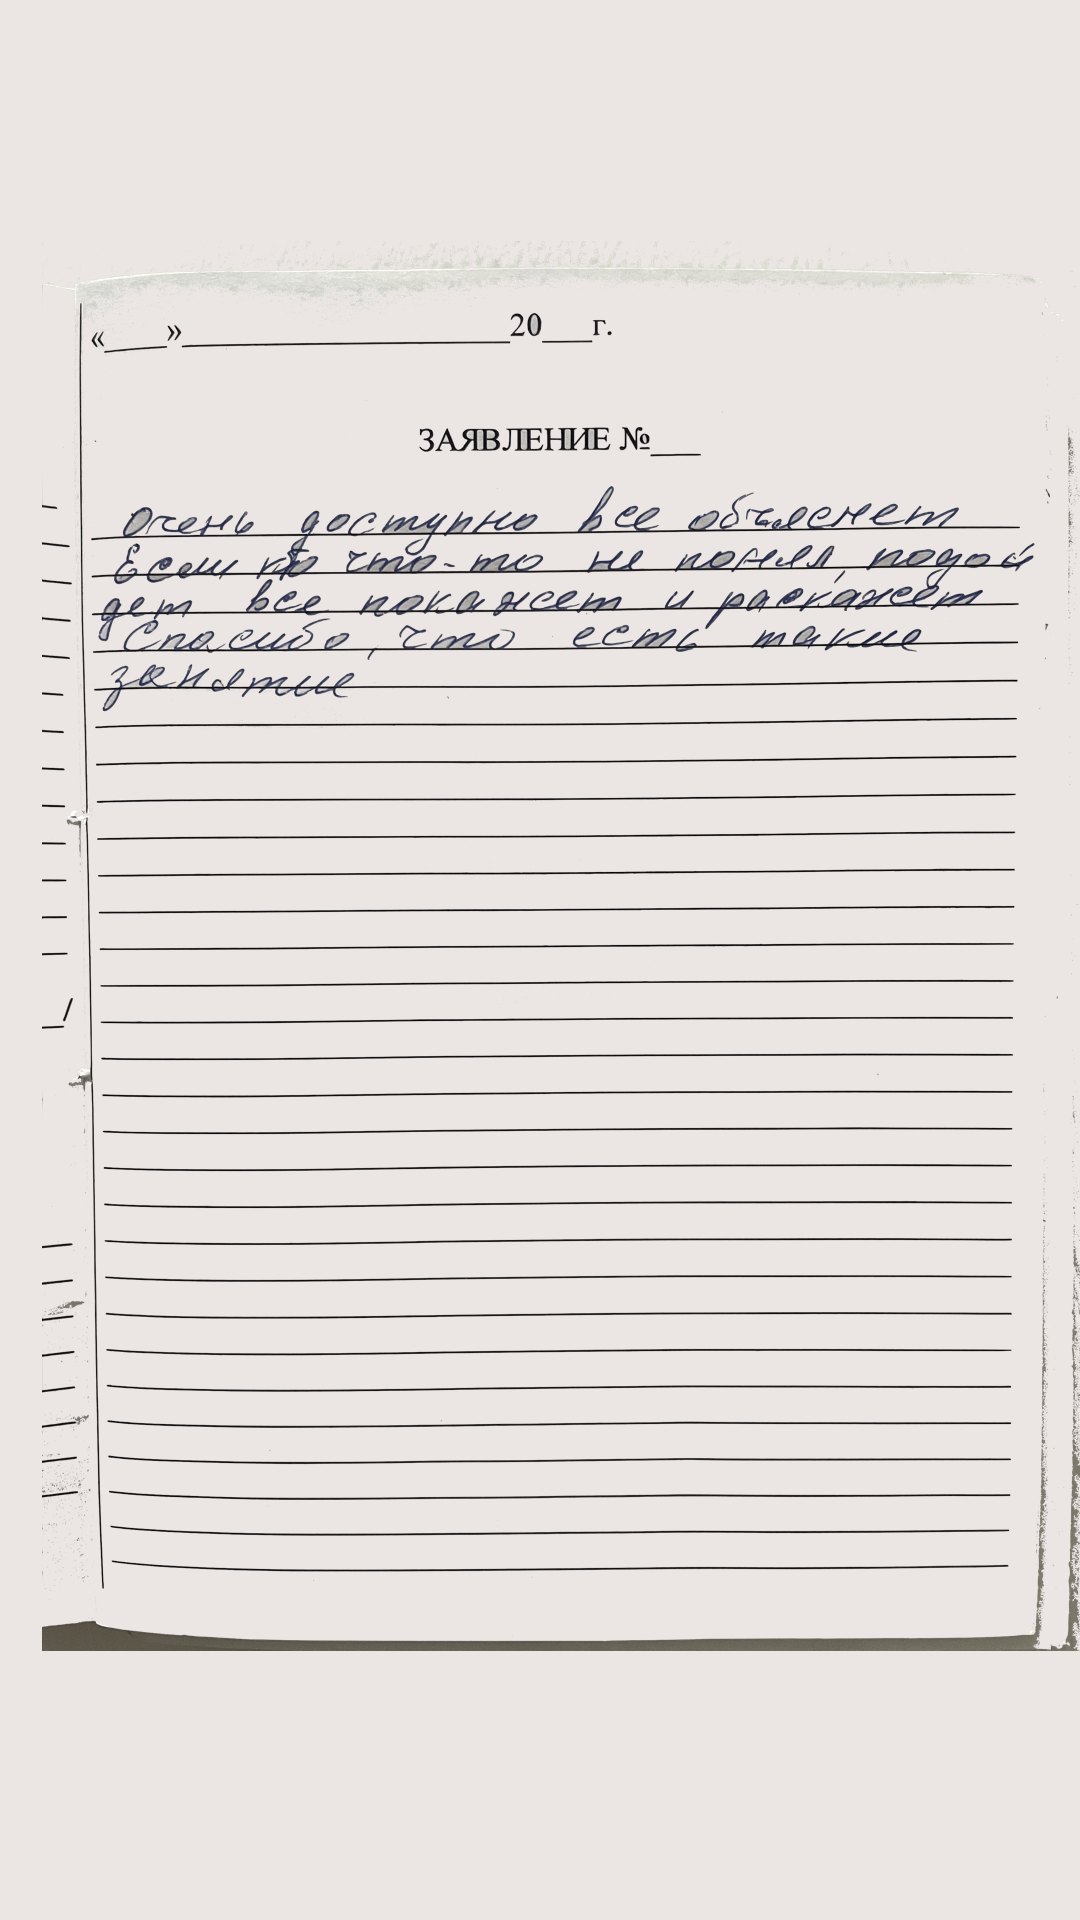 «____»____________________20___г.
ЗАЯВЛЕНИЕ №___
Очень доступно все объяснет
Если кто что-то не понял, подой
дет все покажет и раскажет
Спасибо, что есть такие
занятие